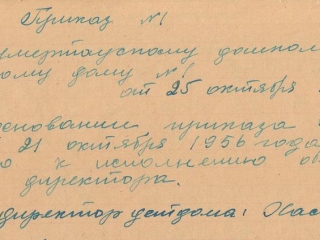 Приказ №1
умертаускому дошколь
ному дому №1
от 25 октября
основании приказа
21 октября 1956 года
к исполнению об
директора.
директор детдома: Хас